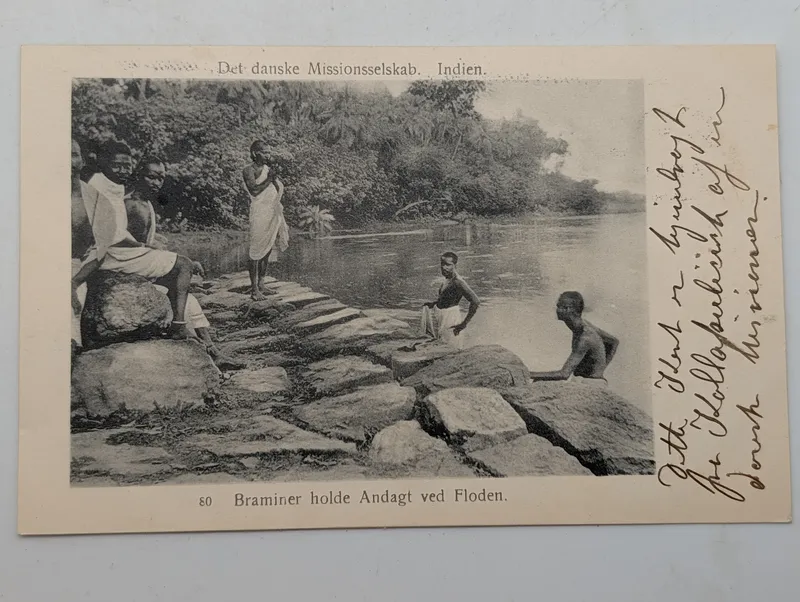 Det danske Missionsselskab. Indien.
80 Braminer holde Andagt ved Floden.
Dette Kort er
fra af en
dansk Missionær.